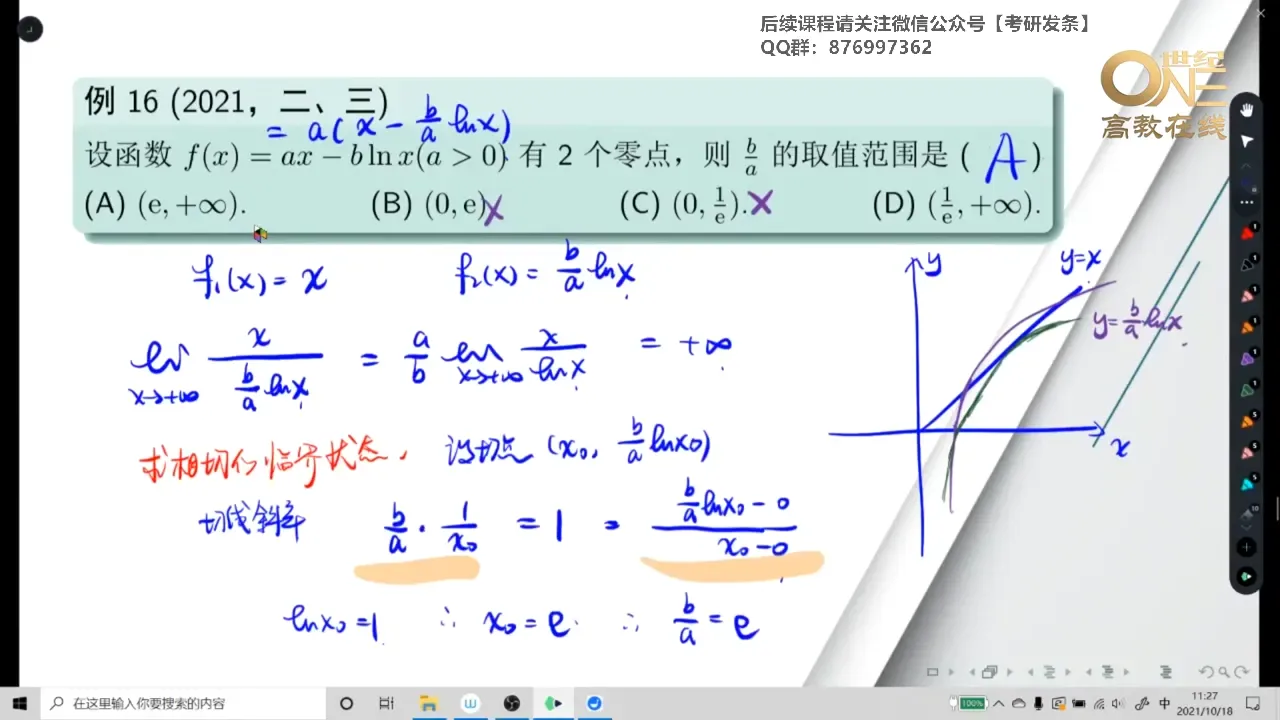 后续课程请关注微信公众号【考研发条】
QQ群：876997362
世纪
ONE
高教在线
例 16 (2021，二、三)
= a( x − b/a ln x)
设函数 f(x) = ax − b ln x(a > 0) 有 2 个零点，则 b/a 的取值范围是 ( A )
(A) (e, +∞). (B) (0, e) × (C) (0, 1/e). × (D) (1/e, +∞).
f₁(x) = x f₂(x) = b/a ln x
y
y=x
y= b/a ln x
x
lim x→+∞ x / (b/a ln x) = a/b lim x→+∞ x / ln x = +∞
求相切的临界状态， 设切点 (x₀, b/a ln x₀)
切线斜率 b/a · 1/x₀ = 1 = (b/a ln x₀ − 0) / (x₀ − 0)
ln x₀ = 1 ∴ x₀ = e. ∴ b/a = e
在这里输入你要搜索的内容
100%
中
11:27
2021/10/18